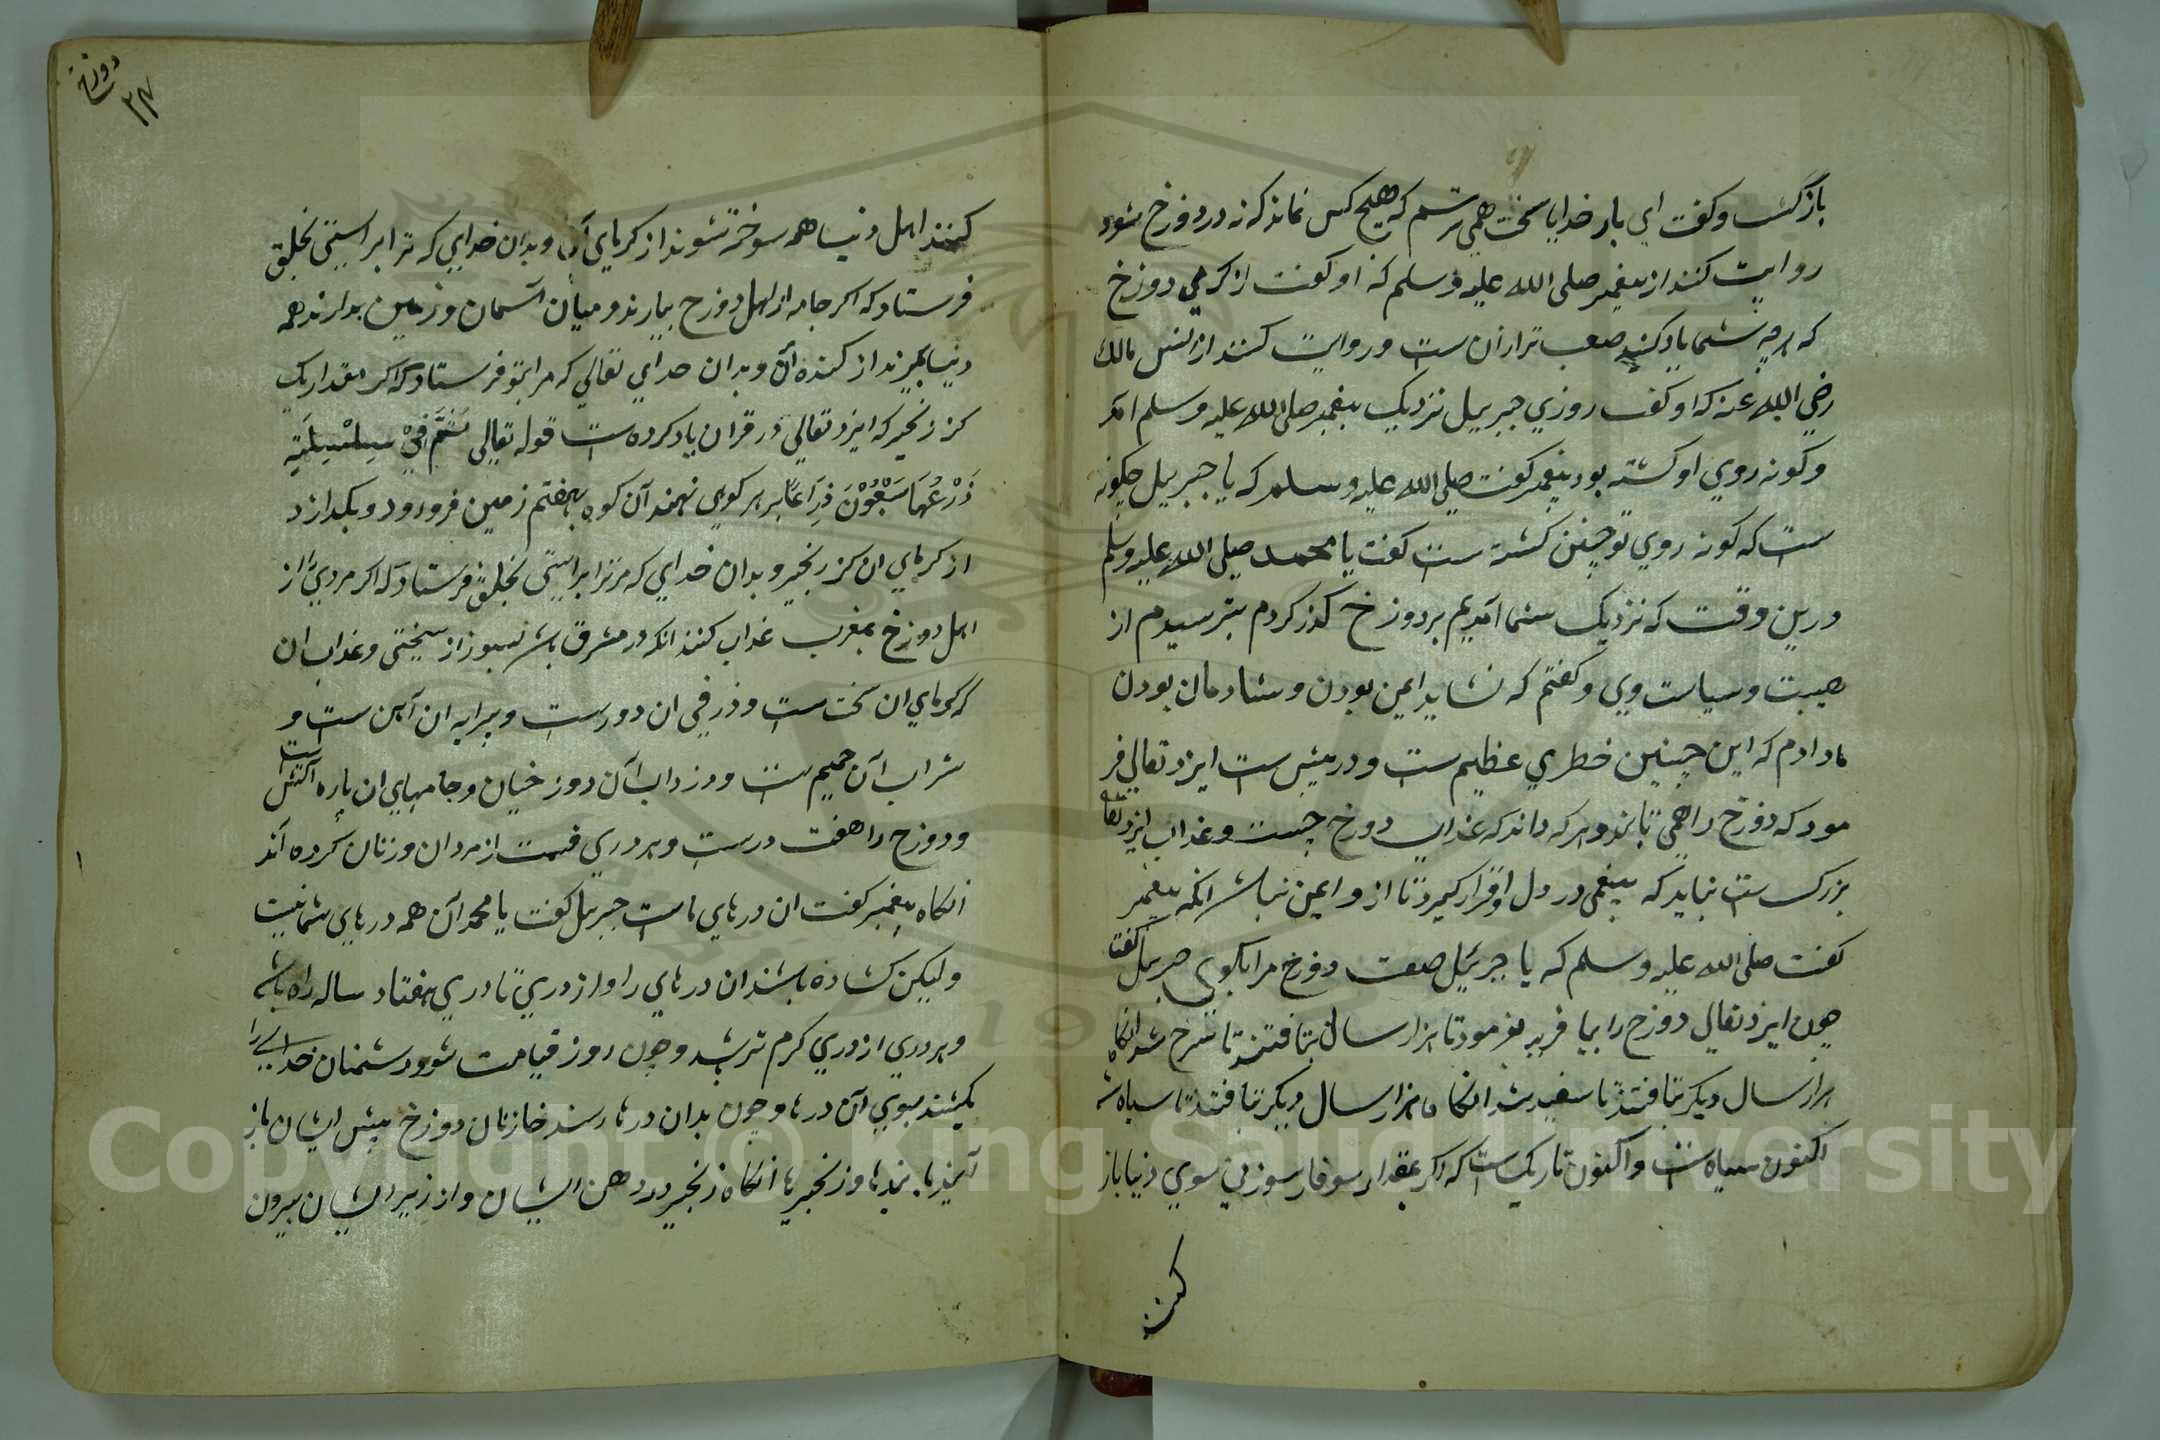 بازگشت و کفت ای بار خدایا سخت همی ترسم که هیچ کس نماند که نه در دوزخ شود
روایت کنند از پیغمبر صلی الله علیه وسلم که او کفت از کرمی دوزخ
که هرچه شما یاد کنید صعب تر از آن ست و روایت کنند از انس مالک
رضی الله عنه که او کفت روزی جبریل نزدیک پیغمبر صلی الله علیه وسلم آمد
و کونه روی او کشته بود پیغمبر کفت صلی الله علیه وسلم که یا جبریل چکونه
ست که کونه روی تو چنین کشته ست کفت یا محمد صلی الله علیه وسلم
درین وقت که نزدیک شما آمدیم بر دوزخ کذر کردم بترسیدم از
هیبت و سیاست وی و کفتم که نشاید ایمن بودن و شادمان بودن
مادام که این چنین خطری عظیم ست و در پیش ست ایزد تعالی فر
مود که دوزخ را همی تابند و هر که داند که عذاب دوزخ چیست و عذاب ایزد تعالی
بزرک ست نباید که بیغمی در دل او قرار کیرد تا از و ایمن نباشد انکه پیغمبر
کفت صلی الله علیه وسلم که یا جبریل صفت دوزخ مرا بکوی جبریل کفتا
چون ایزد تعالی دوزخ را بیافرید بفرمود تا هزار سال بتافتند تا سرخ شد انکاه
هزار سال دیکر بتافتند تا سفید شد انکاه هزار سال دیکر بتافتند تا سیاه شد
اکنون سیاه ست و اکنون تاریک ست که اکر بمقدار سوفار سوزنی سوی دنیا باز
کنند
دوزخ
۲۷
کنند اهل دنیا همه سوخته شوند از کرمای آن و بدان خدایی که ترا براستی بخلق
فرستاد که اکر جامه از اهل دوزخ بیارند و میان آسمان و زمین بدارند همه
دنیا بمیرند از کنده آن و بدان خدای تعالی که مرا بتو فرستاد که اکر مقدار یک
کز زنجیر که ایزد تعالی در قران یاد کرده ست قوله تعالی ثُمَّ فِیْ سِلْسِلَةٍ
ذَرْعُهَا سَبْعُوْنَ ذِرَاعًا بر هر کوهی نهند آن کوه بهفتم زمین فرو رود و بکدازد
از کرمای ان کز زنجیر و بدان خدایی که مر ترا براستی بخلق فرستاد که اکر مردی را از
اهل دوزخ بمغرب عذاب کنند انکه در مشرق باشد بسوزد از سختی و عذاب ان
که کرمای ان سخت ست و ذرفی ان دورست و پیرایه ان آهن ست و
شراب آن حمیم ست و و زداب آن دوزخیان و جامهای ان پاره آتش ست
و دوزخ را هفت درست و هر دری قسمت از مردان و زنان کرده اند
انکاه پیغمبر کفت ان درهای ماست جبریل کفت یا محمد آن همه درهای شما نیست
ولیکن کشاده باشند ان درهای را و از دری تا دری هفتاد ساله راه باشد
و هر دری از دری کرم تر باشد و چون روز قیامت شود دشمنان خدای را
بکشند بسوی آن درها و چون بدان درها رسند خازنان دوزخ پیش ایشان باز
آیند با بندها و زنجیرها انکاه زنجیر در دهن ایشان و از زیر ایشان بیرون
Copyright © King Saud University